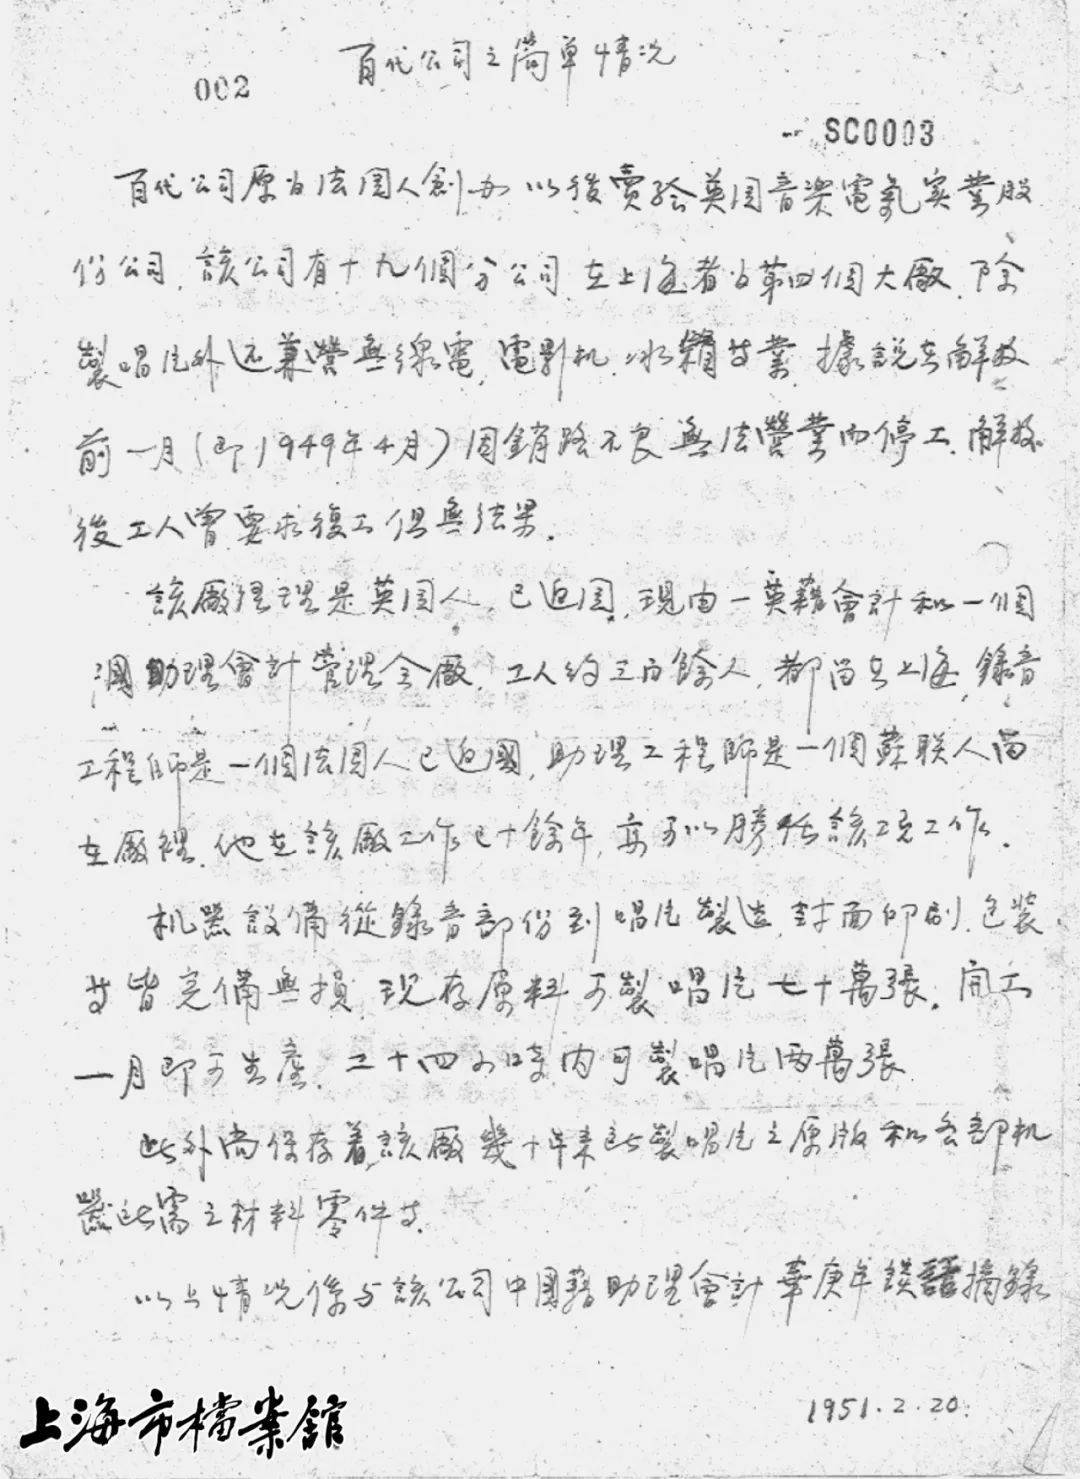 百代公司之简单情况
002
SC0003
百代公司原为法国人創办以後賣给英国音楽電氣实業股
份公司，該公司有十九個分公司在上海者为第四個大廠，除
製唱片外还兼營無線電，電影机，冰箱等業，據說在解放
前一月（即1949年4月）因銷路不良無法營業而停工，解放
後工人曾要求復工但無结果．
該廠经理是英国人，已迴国，現由一英藉會計和一個
中國助理會計管理全廠，工人约三百餘人，都留在上海，錄音
工程師是一個法国人已迴國，助理工程師是一個蘇联人尚
在廠裡，他在該廠工作已十餘年，亦可以勝任該項工作．
机器設備從錄音部份到唱片製造，封面印刷，包装
等皆完備無損，現存原料可製唱片七十萬張，開工
一月即可生産，二十四小時内可製唱片兩萬張
此外尚保存着該廠幾十年来所製唱片之原版和各部机
器所需之材料零件等．
以上情况係与該公司中國藉助理會計華庚年談話摘錄
1951.2.20.
上海市檔案館